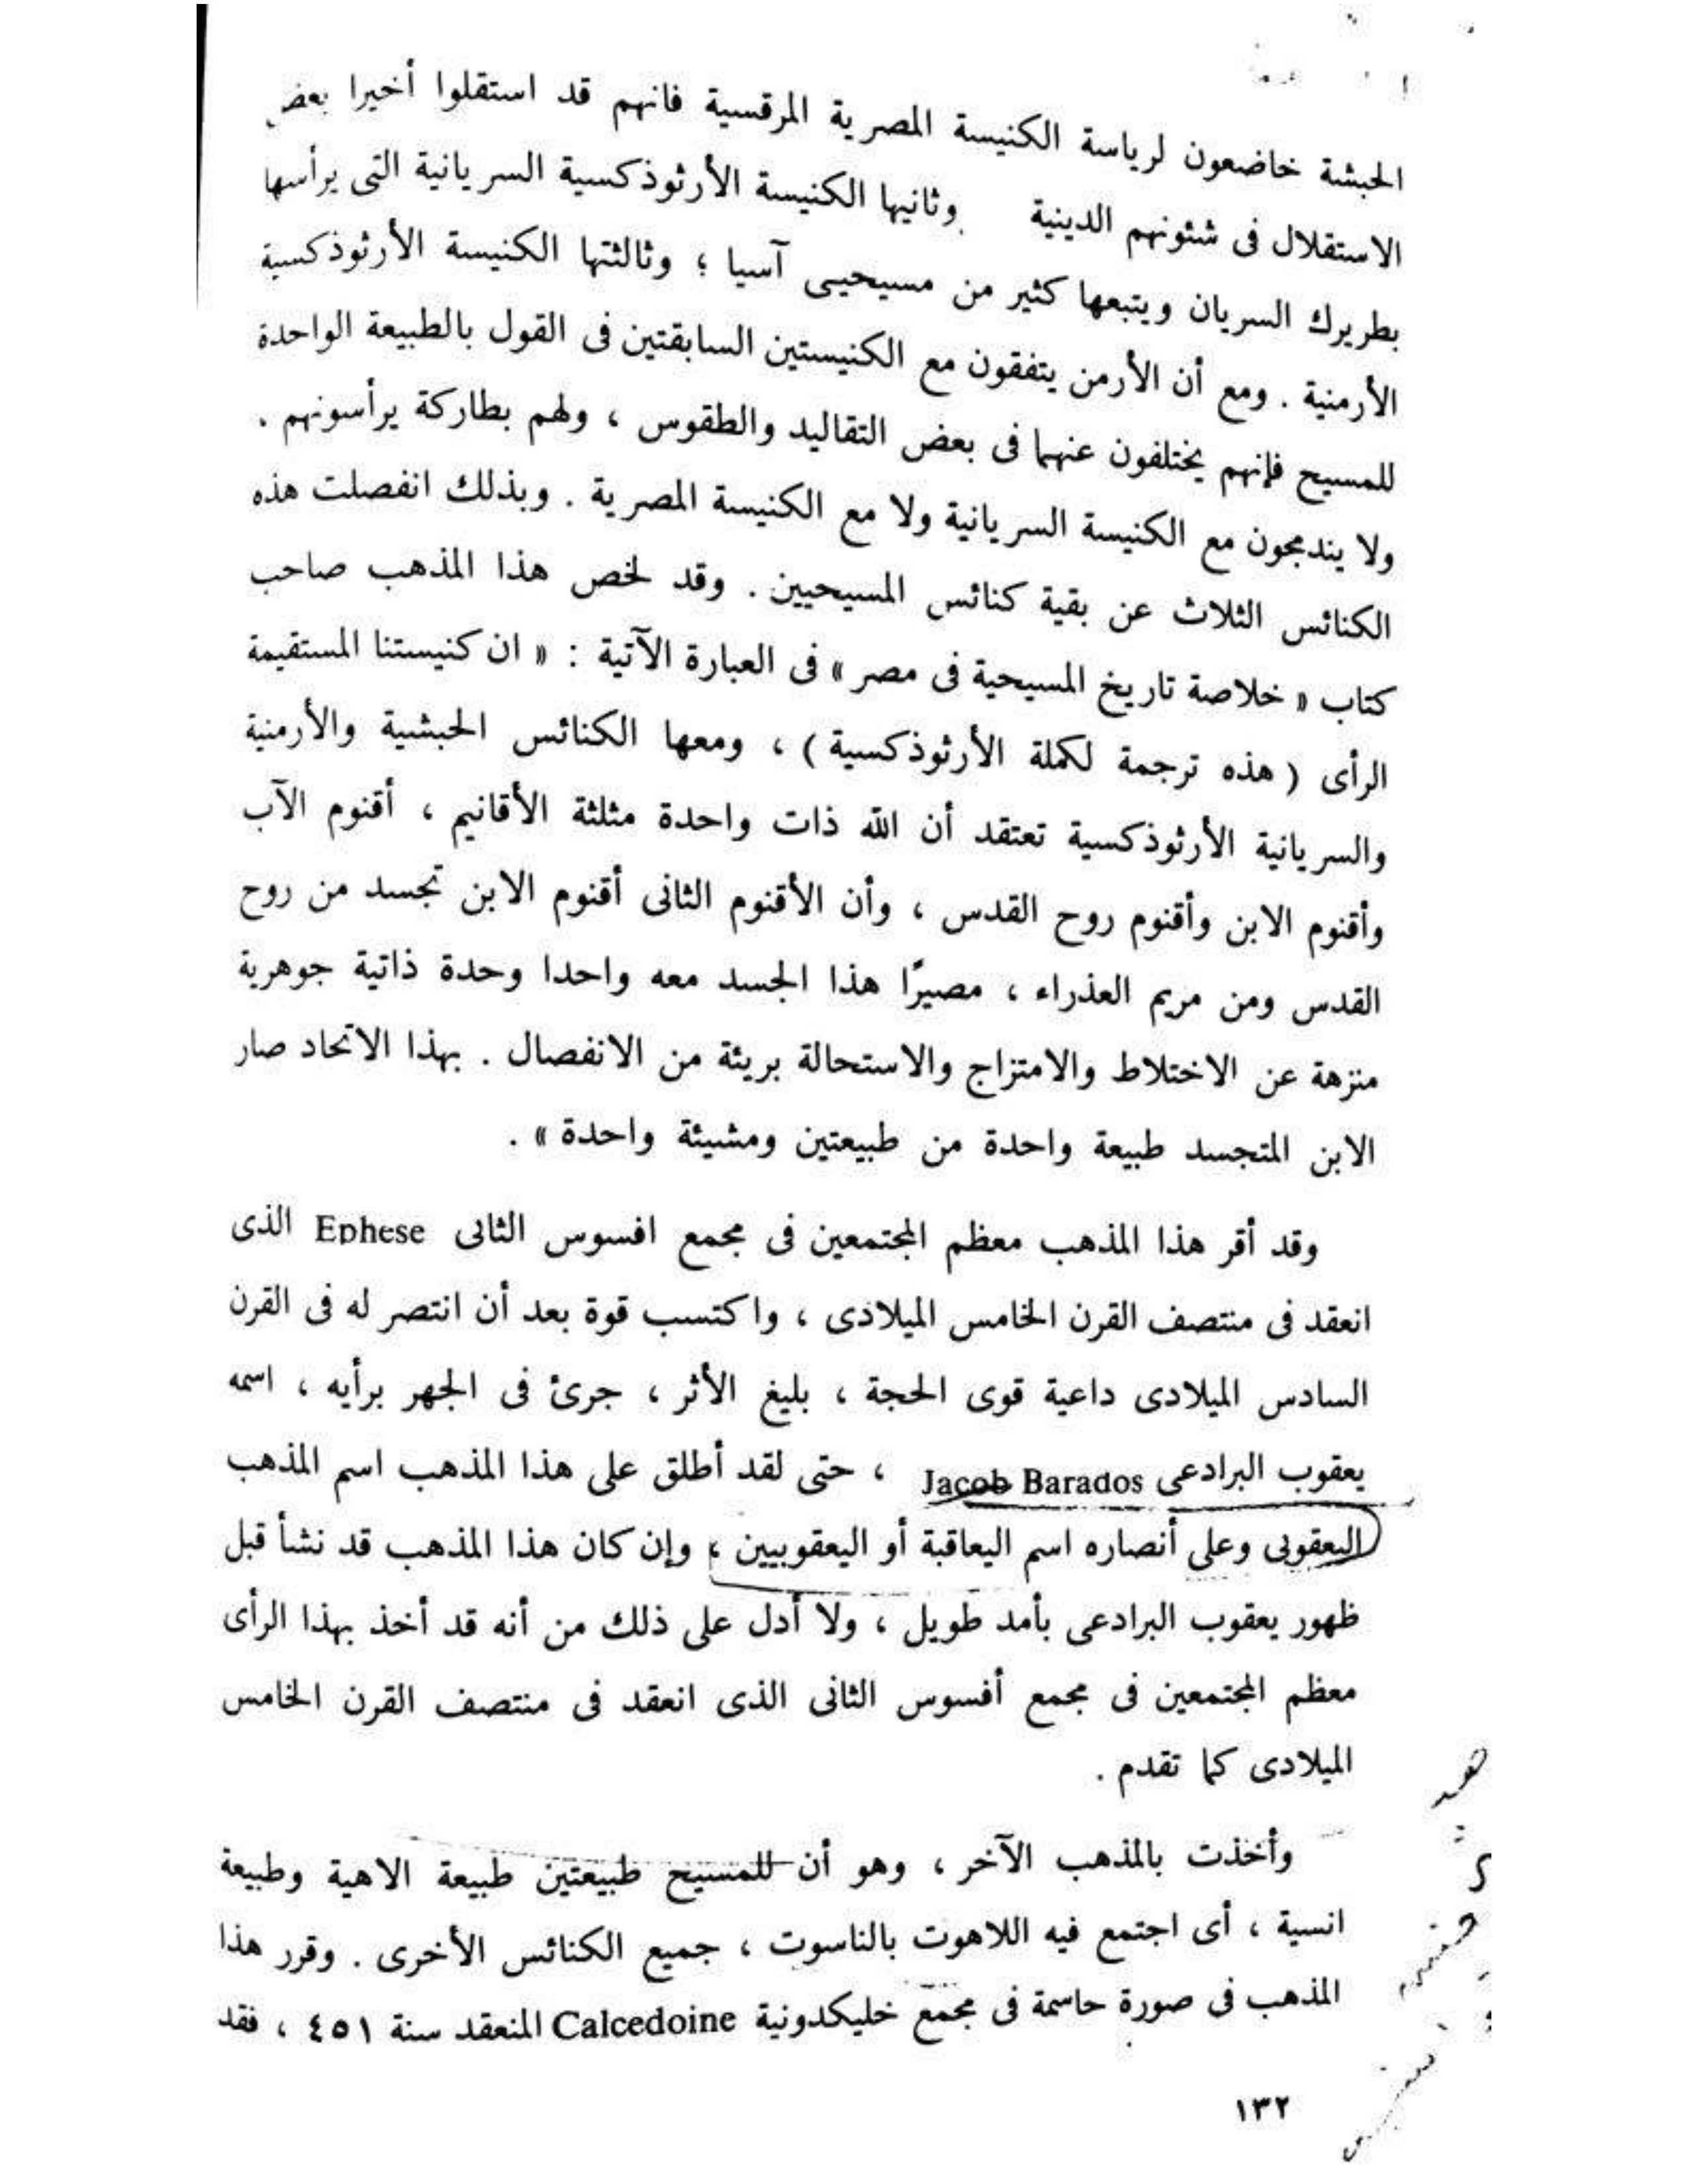 الحبشة خاضعون لرياسة الكنيسة المصرية المرقسية فانهم قد استقلوا أخيرا بعض
الاستقلال فى شئونهم الدينية . وثانيها الكنيسة الأرثوذكسية السريانية التى يرأسها
بطريرك السريان ويتبعها كثير من مسيحيى آسيا ؛ وثالثتها الكنيسة الأرثوذكسية
الأرمنية . ومع أن الأرمن يتفقون مع الكنيستين السابقتين فى القول بالطبيعة الواحدة
للمسيح فإنهم يختلفون عنهما فى بعض التقاليد والطقوس ، ولهم بطاركة يرأسونهم .
ولا يندمجون مع الكنيسة السريانية ولا مع الكنيسة المصرية . وبذلك انفصلت هذه
الكنائس الثلاث عن بقية كنائس المسيحيين . وقد لخص هذا المذهب صاحب
كتاب « خلاصة تاريخ المسيحية فى مصر » فى العبارة الآتية : « ان كنيستنا المستقيمة
الرأى ( هذه ترجمة لكملة الأرثوذكسية ) ، ومعها الكنائس الحبشية والأرمنية
والسريانية الأرثوذكسية تعتقد أن الله ذات واحدة مثلثة الأقانيم ، أقنوم الآب
وأقنوم الابن وأقنوم روح القدس ، وأن الأقنوم الثانى أقنوم الابن تجسد من روح
القدس ومن مريم العذراء ، مصيرًا هذا الجسد معه واحدا وحدة ذاتية جوهرية
منزهة عن الاختلاط والامتزاج والاستحالة بريئة من الانفصال . بهذا الاتحاد صار
الابن المتجسد طبيعة واحدة من طبيعتين ومشيئة واحدة » .
وقد أقر هذا المذهب معظم المجتمعين فى مجمع افسوس الثانى Ephese الذى
انعقد فى منتصف القرن الخامس الميلادى ، واكتسب قوة بعد أن انتصر له فى القرن
السادس الميلادى داعية قوى الحجة ، بليغ الأثر ، جرئ فى الجهر برأيه ، اسمه
يعقوب البرادعى Jacob Barados ، حتى لقد أطلق على هذا المذهب اسم المذهب
اليعقوبى وعلى أنصاره اسم اليعاقبة أو اليعقوبيين ؛ وإن كان هذا المذهب قد نشأ قبل
ظهور يعقوب البرادعى بأمد طويل ، ولا أدل على ذلك من أنه قد أخذ بهذا الرأى
معظم المجتمعين فى مجمع أفسوس الثانى الذى انعقد فى منتصف القرن الخامس
الميلادى كما تقدم .
وأخذت بالمذهب الآخر ، وهو أن للمسيح طبيعتين طبيعة الاهية وطبيعة
انسية ، أى اجتمع فيه اللاهوت بالناسوت ، جميع الكنائس الأخرى . وقرر هذا
المذهب فى صورة حاسمة فى مجمع خليكدونية Calcedoine المنعقد سنة ٤٥١ ، فقد
١٣٢